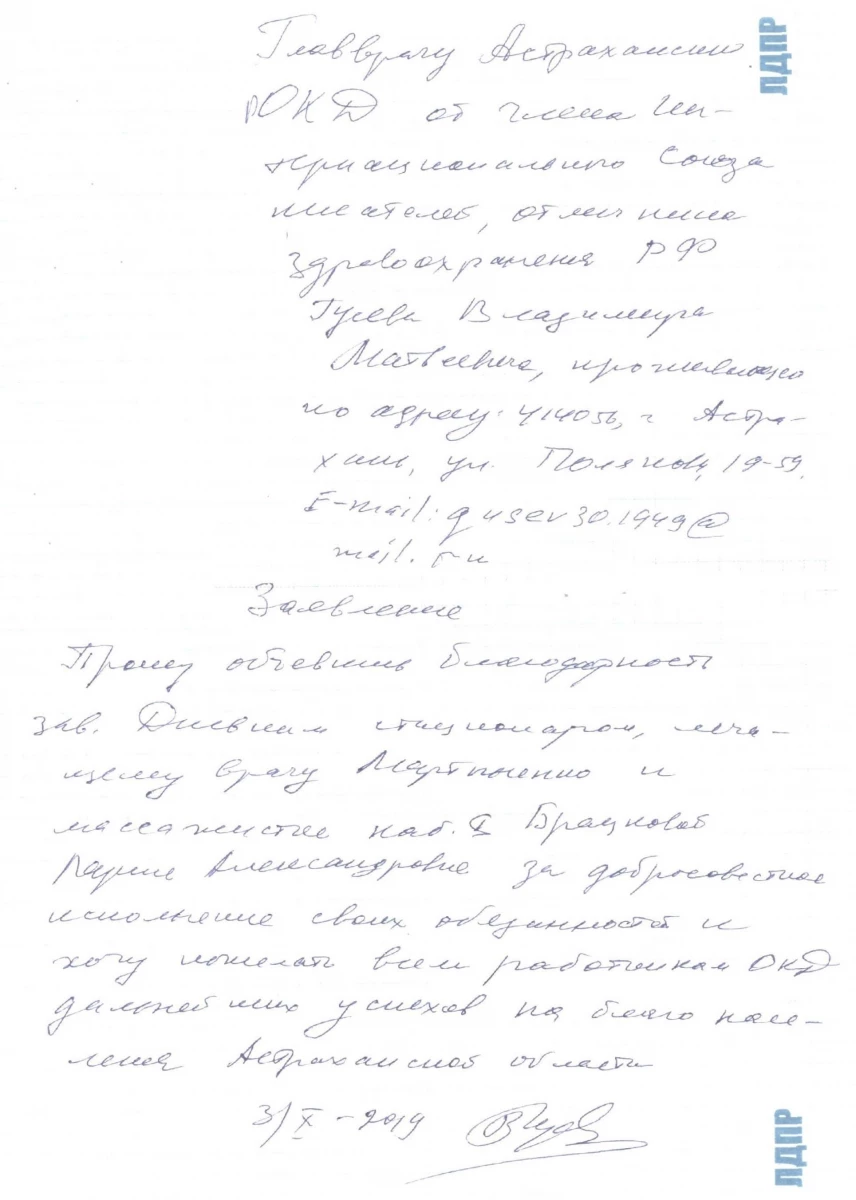 ЛДПР
Главврачу Астраханского
ОКД от члена Ин-
тернационального Союза
писателей, отличника
здравоохранения РФ
Гусева Владимира
Матвеевича, проживающего
по адресу: 414056, г. Астра-
хань, ул. Полякова, 19-59.
E-mail: gusev30.1949@
mail.ru
Заявление
Прошу объявить благодарность
зав. Дневным стационаром, леча-
щему врачу Мартыненко и
массажистке каб. Брацковой
Ларисе Александровне за добросовестное
исполнение своих обязанностей и
хочу пожелать всем работникам ОКД
дальнейших успехов на благо насе-
ления Астраханской области
3/X-2019
ЛДПР